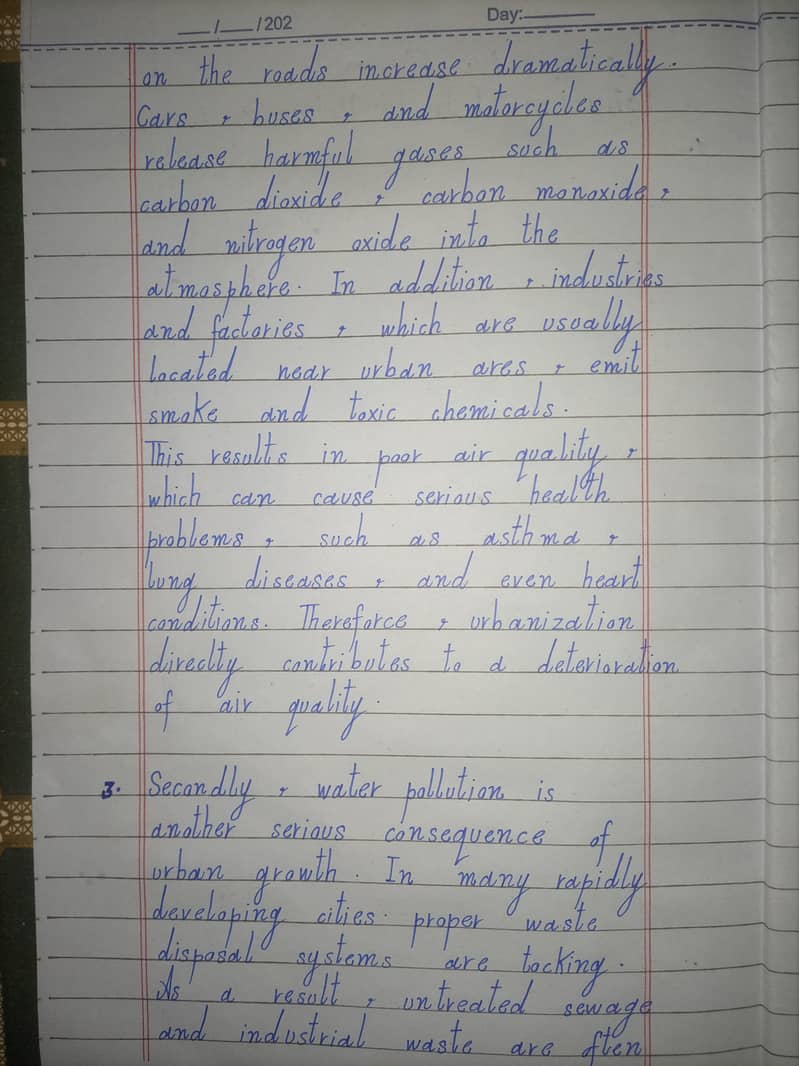 __/__/202 Day:
on the roads increase dramatically.
Cars , buses , and motorcycles
release harmful gases such as
carbon dioxide , carbon monoxide ,
and nitrogen oxide into the
atmosphere. In addition , industries
and factories , which are usually
located near urban ares , emit
smoke and toxic chemicals.
This results in poor air quality ,
which can cause serious health
problems , such as asthma ,
lung diseases , and even heart
conditions. Thereforce , urbanization
direclty contributes to a deterioration
of air quality.
3. Secondly , water pollution is
another serious consequence of
urban growth. In many rapidly
developing cities. proper waste
disposal systems are tocking.
As a result , untreated sewage
and industrial waste are often